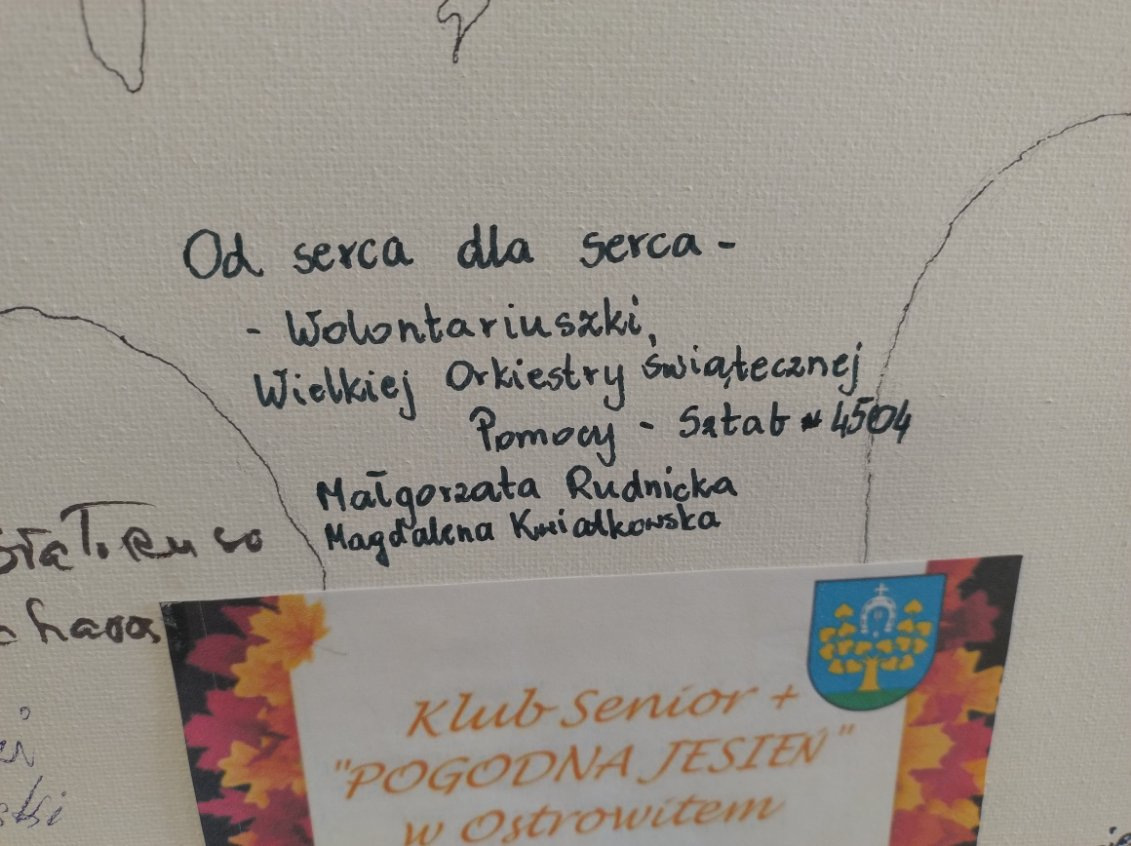 Od serca dla serca -
- Wolontariuszki,
Wielkiej Orkiestry Świątecznej
Pomocy - Sztab 4504
Małgorzata Rudnicka
Magdalena Kwiatkowska
Klub Senior +
"POGODNA JESIEŃ"
w Ostrowitem